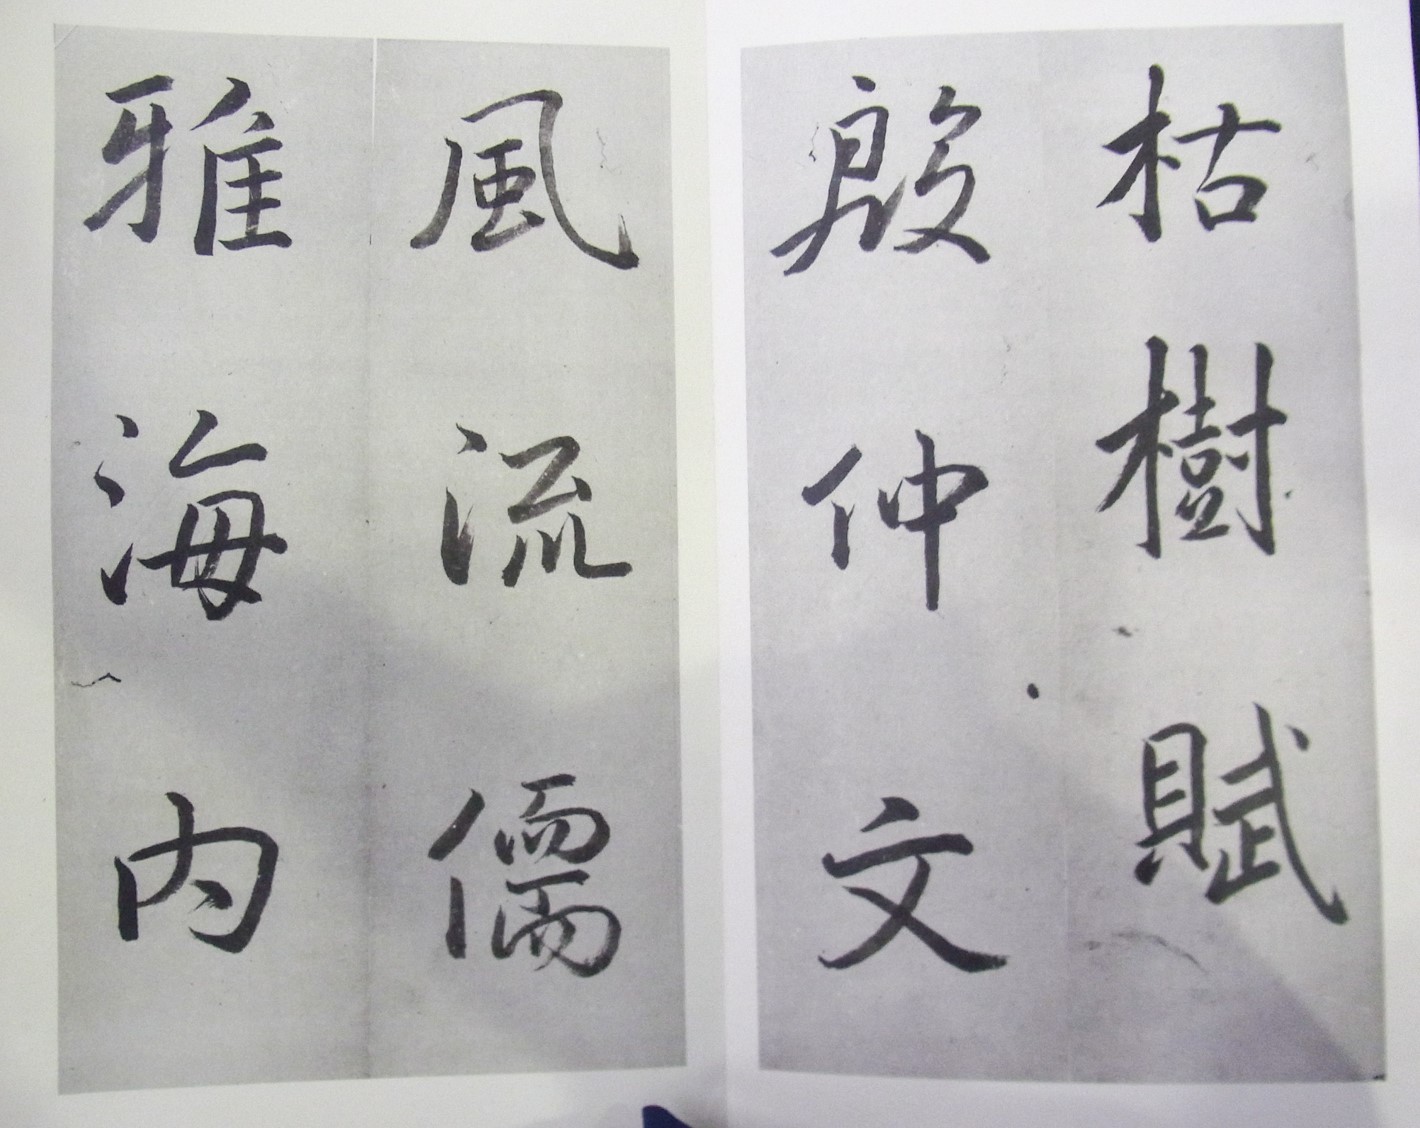 枯樹賦
殷仲文
風流儒
雅海內